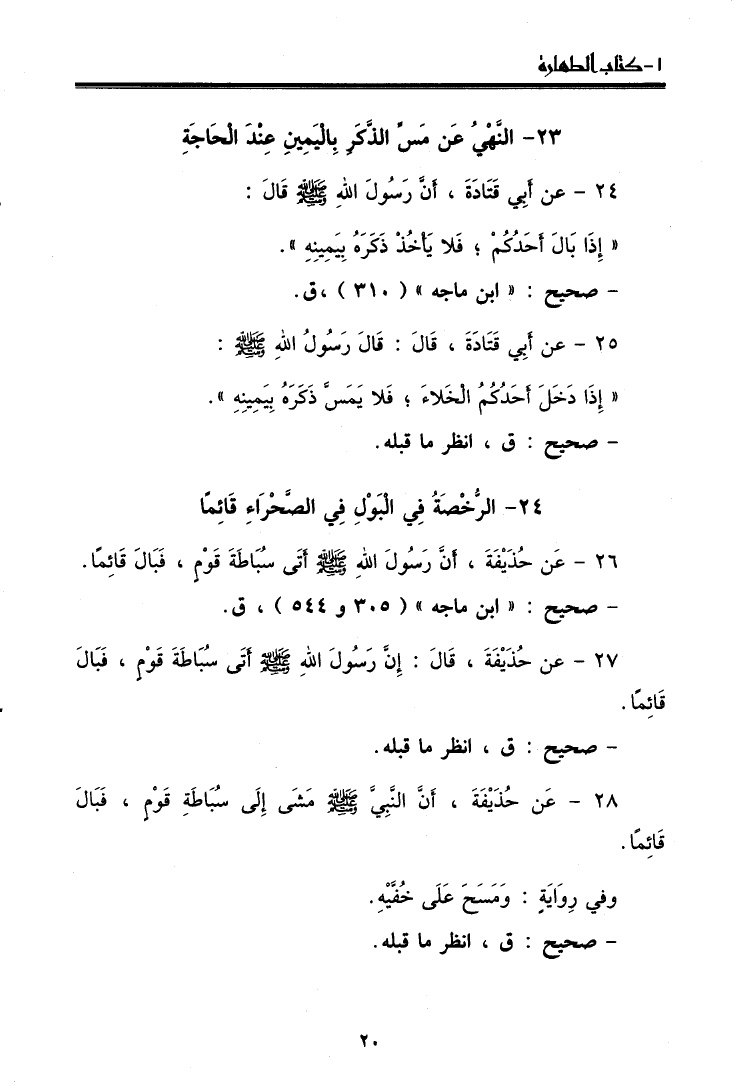 ١- كتاب الطهارة
٢٣- النَّهْيُ عَن مَسِّ الذَّكَرِ بِالْيَمِينِ عِنْدَ الْحَاجَةِ
٢٤ - عن أَبِي قَتَادَةَ ، أَنَّ رَسُولَ اللهِ ﷺ قَالَ :
« إِذَا بَالَ أَحَدُكُمْ ؛ فَلا يَأْخُذْ ذَكَرَهُ بِيَمِينِهِ ».
- صحيح : « ابن ماجه » ( ٣١٠ ) ،ق.
٢٥ - عن أَبِي قَتَادَةَ ، قَالَ : قَالَ رَسُولُ اللهِ ﷺ :
« إِذَا دَخَلَ أَحَدُكُمُ الْخَلاءَ ؛ فَلا يَمَسَّ ذَكَرَهُ بِيَمِينِهِ ».
- صحيح : ق ، انظر ما قبله.
٢٤- الرُّخْصَةُ فِي الْبَوْلِ فِي الصَّحْرَاءِ قَائِمًا
٢٦ - عَن حُذَيْفَةَ ، أَنَّ رَسُولَ اللهِ ﷺ أَتَى سُبَاطَةَ قَوْمٍ ، فَبَالَ قَائِمًا.
- صحيح : « ابن ماجه » ( ٣٠٥ و ٥٤٤ ) ، ق.
٢٧ - عن حُذَيْفَةَ ، قَالَ : إِنَّ رَسُولَ اللهِ ﷺ أَتَى سُبَاطَةَ قَوْمٍ ، فَبَالَ
قَائِمًا.
- صحيح : ق ، انظر ما قبله.
٢٨ - عَن حُذَيْفَةَ ، أَنَّ النَّبِيَّ ﷺ مَشَى إِلَى سُبَاطَةِ قَوْمٍ ، فَبَالَ
قَائِمًا.
وفي رِوَايَةٍ : وَمَسَحَ عَلَى خُفَّيْهِ.
- صحيح : ق ، انظر ما قبله.
٢٠